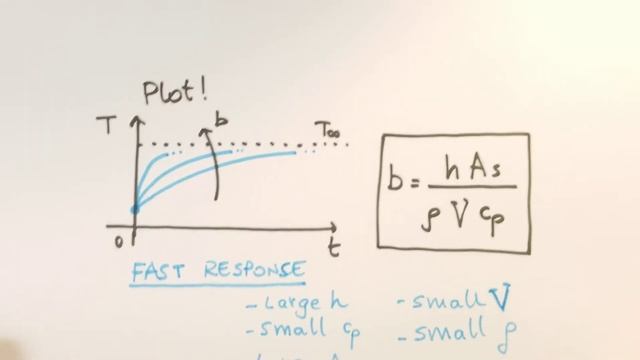 Plot!
T b T∞
b = h As / ρ V cp
0 t
FAST RESPONSE
- Large h - small V
- small cp - small ρ